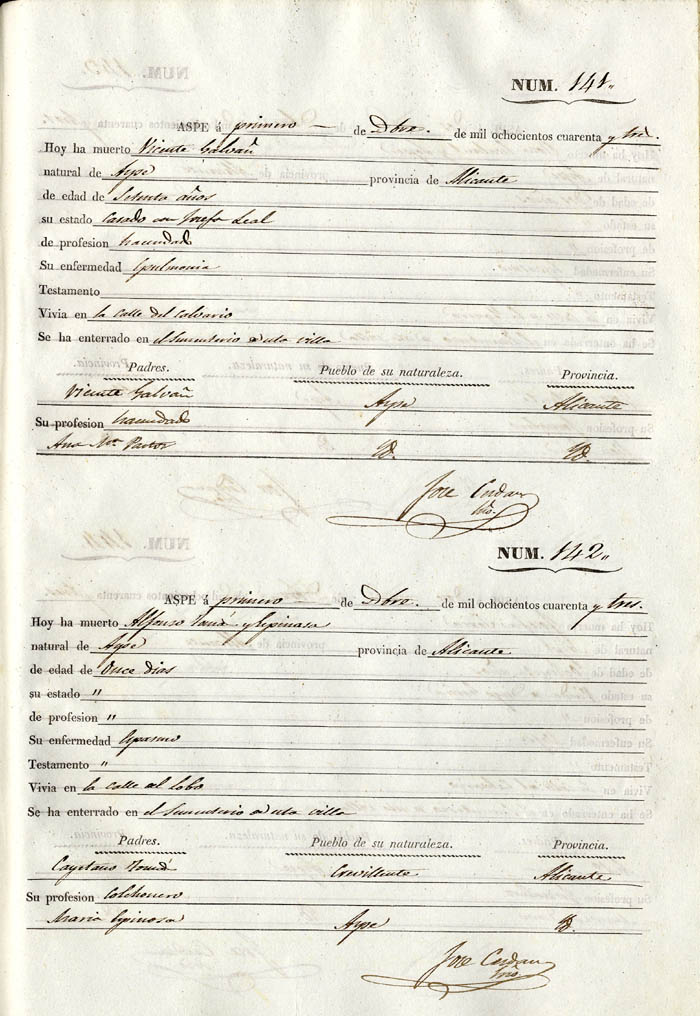 NUM. 141"
ASPE á primero de Dbre. de mil ochocientos cuarenta y tres.
Hoy ha muerto Vicente Galvañ
natural de Aspe provincia de Alicante
de edad de Setenta años
su estado Casado con Josefa Leal
de profesion hacendado
Su enfermedad Epulmonia
Testamento
Vivia en la calle del calvario
Se ha enterrado en el Sementerio de esta villa
Padres. Pueblo de su naturaleza. Provincia.
Vicente Galvañ Aspe Alicante
Su profesion hacendado
Ana Mª. Pastor Yd. Yd.
Jose Cerdan
NUM. 142"
ASPE á primero de Dbre. de mil ochocientos cuarenta y tres.
Hoy ha muerto Alfonso Tomá y Espinosa
natural de Aspe provincia de Alicante
de edad de Once dias
su estado "
de profesion "
Su enfermedad Espasmo
Testamento "
Vivia en la calle del Lobo
Se ha enterrado en el Sementerio de esta villa
Padres. Pueblo de su naturaleza. Provincia.
Cayetano Tomá Crevillente Alicante
Su profesion Colchonero
Maria Espinosa Aspe Yd.
Jose Cerdan